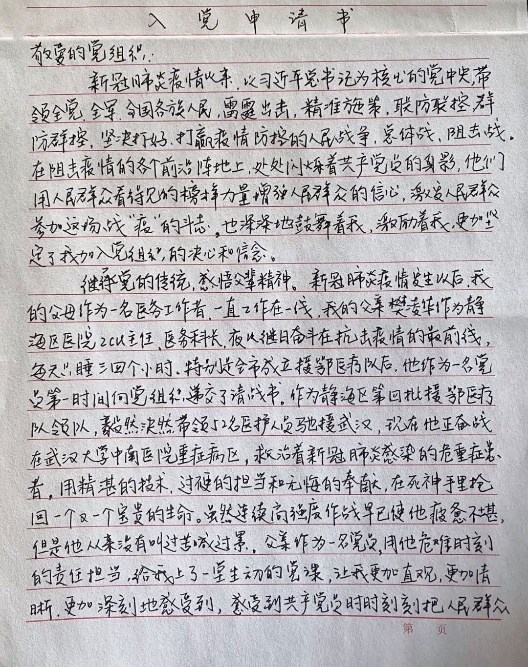 入党申请书
敬爱的党组织：
新冠肺炎疫情以来，以习近平总书记为核心的党中央，带
领全党、全军、全国各族人民，雷霆出击，精准施策，联防联控，群
防群控，坚决打好、打赢疫情防控的人民战争、总体战、阻击战。
在阻击疫情的各个前沿阵地上，处处闪烁着共产党员的身影，他们
用人民群众看得见的榜样力量增强人民群众的信心，激发人民群众
参加这场战“疫”的斗志。也深深地鼓舞着我，激励着我，更加坚
定了我加入党组织的决心和信念。
继承党的传统，感悟父辈精神。新冠肺炎疫情发生以后，我
的父母作为一名医务工作者，一直工作在一线，我的父亲樊凌华作为静
海区医院ICU主任、医务科长，夜以继日奋斗在抗击疫情的最前线，
每天只睡三四个小时。特别是全市成立援鄂医疗队以后，他作为一名党
员第一时间向党组织递交了请战书。作为静海区第四批援鄂医疗
队领队，毅然决然带领52名医护人员驰援武汉，现在他正奋战
在武汉大学中南医院重症病区，救治着新冠肺炎感染的危重症患
者，用精湛的技术、过硬的担当和无悔的奉献，在死神手里抢
回一个又一个宝贵的生命。虽然连续高强度作战早已使他疲惫不堪，
但是他从来没有叫过苦喊过累。父亲作为一名党员，用他危难时刻
的责任担当，给我上了一堂生动的党课，让我更加直观、更加清
晰、更加深刻地感受到，感受到共产党员时时刻刻把人民群众
第 页